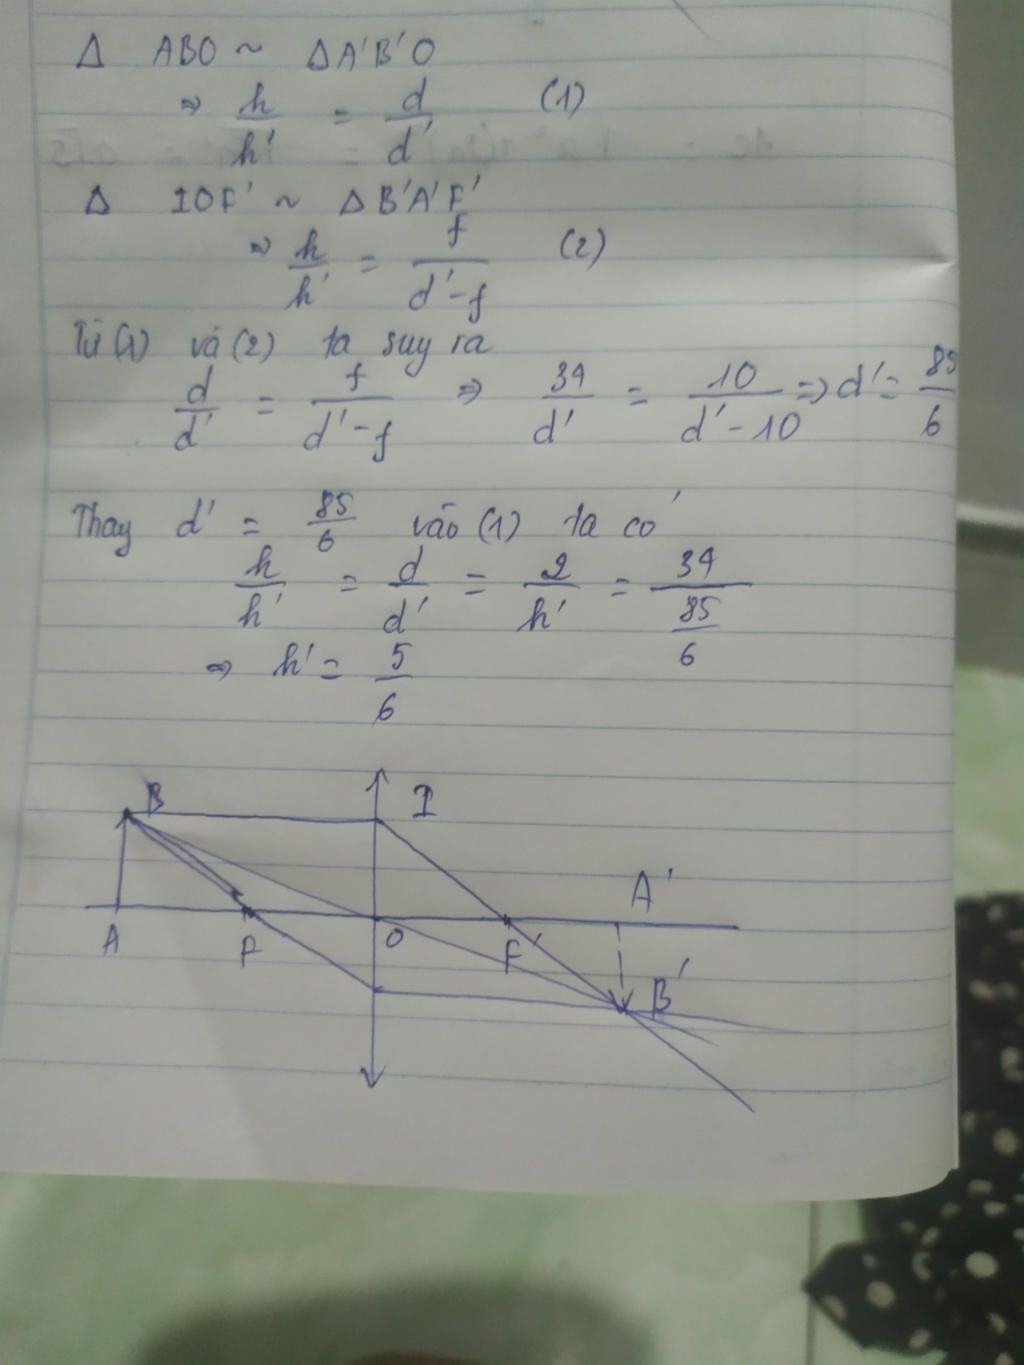 Δ ABO ~ ΔA'B'O
⇒ h/h' = d/d' (1)
Δ IOF' ~ ΔB'A'F'
⇒ h/h' = f/(d'-f) (2)
Từ (1) và (2) ta suy ra
d/d' = f/(d'-f) ⇒ 34/d' = 10/(d'-10) ⇒ d' = 85/6
Thay d' = 85/6 vào (1) ta có
h/h' = d/d' = 2/h' = 34/(85/6)
⇒ h' = 5/6
B I
A'
A F O F' B'